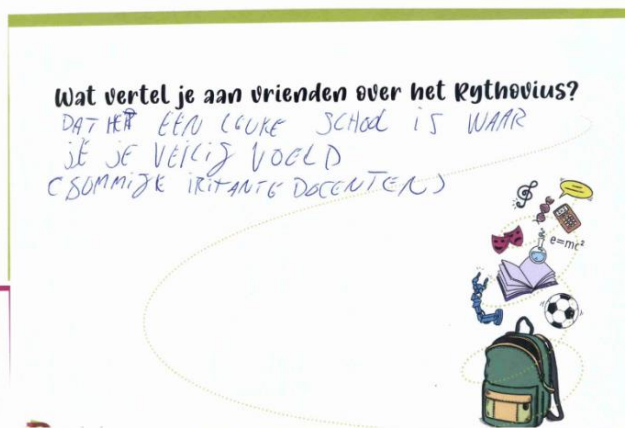 Wat vertel je aan vrienden over het Rythovius?
DAT HET EEN LEUKE SCHOOL IS WAAR
JE JE VEILIG VOELD
(SOMMIGE IRITANTE DOCENTEN)
e=mc²